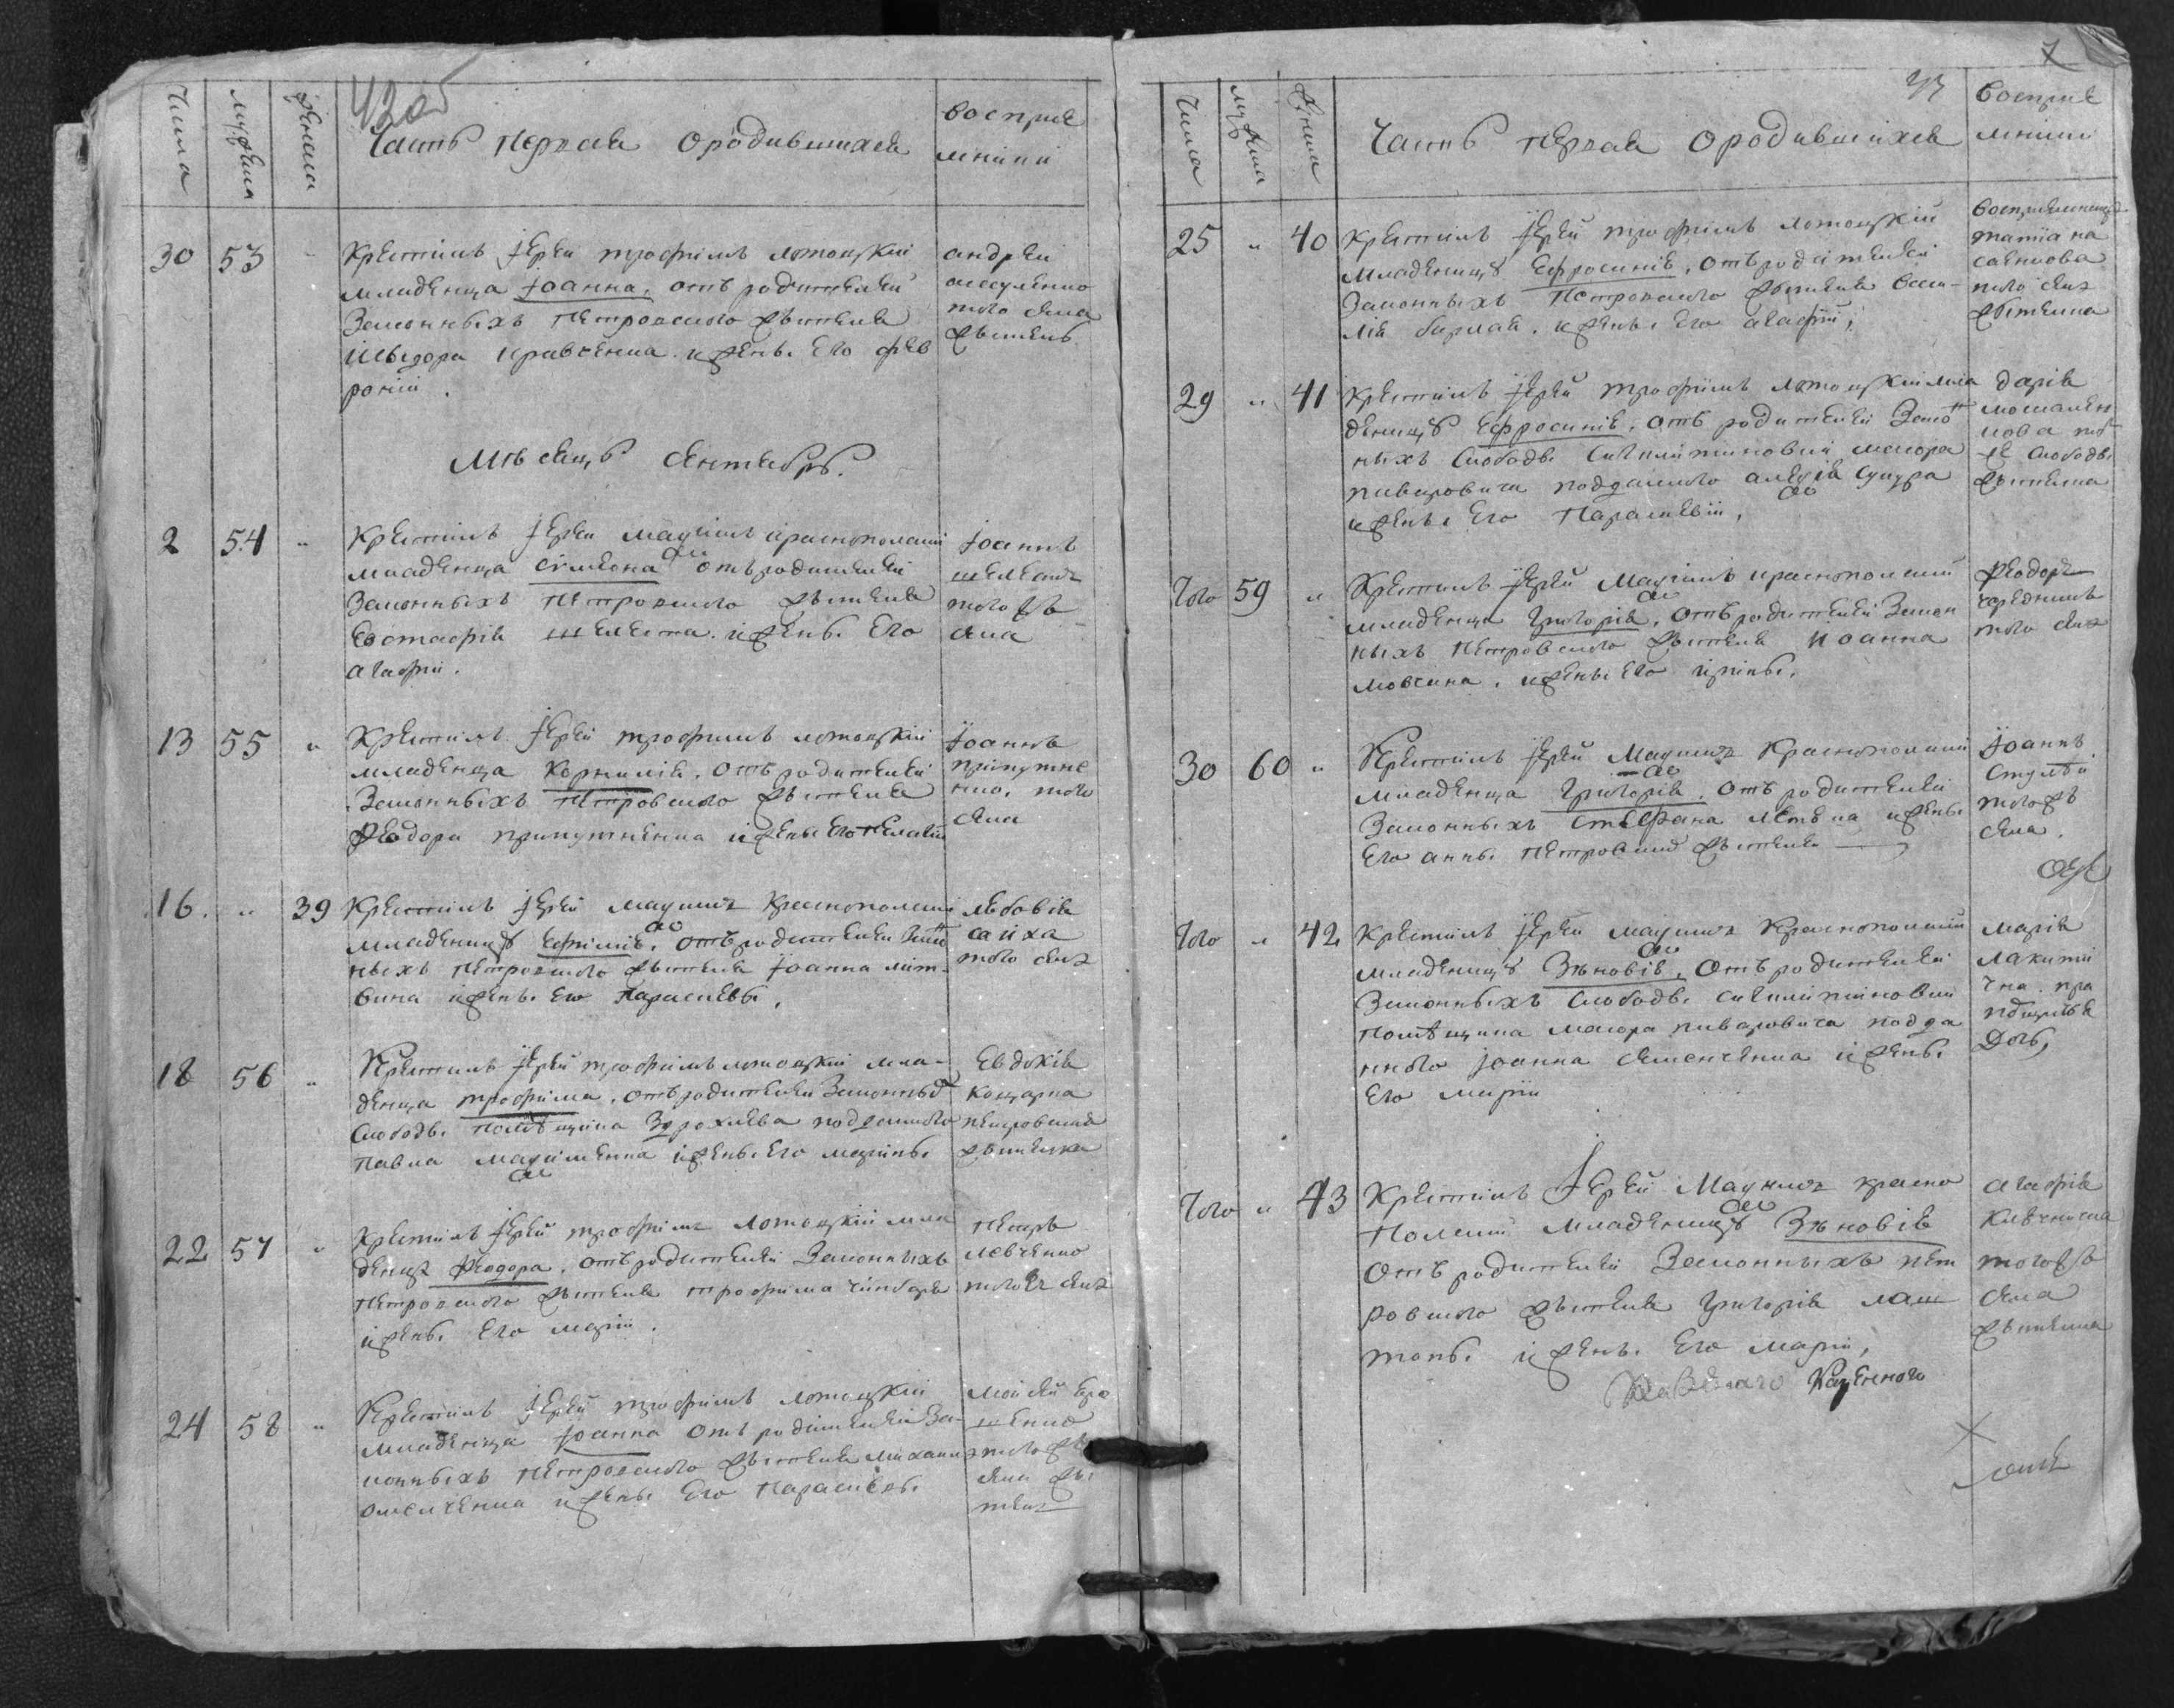 42об
Числа
мужеска
женска
Часть первая о родившихся
восприе
мники
30 53
Крестилъ Іерей трофимъ лотоцкій
младенца Іоанна, отъ родителей
Законныхъ петровского жителя
исидора кравченка и жены его фев
роніи.
андрей
того села
житель
Мѣсецъ сентябръ.
2 54 "
Крестилъ Іерей максимъ краснополскій
младенца сѵмеона отъ родителей
Законныхъ петровского жителя
Евстафія шелеста и жены Его
агафіи.
Іоаннъ
шелестъ
того жъ
села
13 55 "
Крестилъ Іерей трофимъ лотоцкій
младенца Корнилія, отъ родителей
Законныхъ петровского жителя
Феодора припутненка и жены Его пелагіи
Іоаннъ
припутне
нко, того
села
16. " 39
Крестилъ Іерей максимъ Краснополскій
младеницу Ефимію, отъ родителей Закон
ныхъ петровского жителя Іоанна лит
вина и жены Его Параскевы,
любовія
того села
18 56 "
Крестилъ Іерей трофимъ лотоцкій мла-
денца трофима, отъ родителей Законныхъ
Слободы помѣщика подданного
Павла максименка и жены Его марины
Евдокія
Коцарка
петровская
жителка
22 57 "
Крестилъ Іерей трофимъ лотоцкій мла
денца Феодора, отъ родителей Законныхъ
петровского жителя трофима чинбаря
и жены Его маріи.
петръ
левченко
того жъ села
24 58 "
Крестилъ Іерей трофимъ лотоцкій
младенца Іоанна отъ родителей За-
конныхъ петровского жителя михаила
омелченка и жены Его Параскевы
мойсей Еро
шенко
того жъ
села жи
тель
7
43
Числа
мужеска
женска
Часть первая о родившихся
восприе
мники
25 " 40
Крестилъ Іерей трофимъ лотоцкій
младеницу Ефросинію, отъ родителей
Законныхъ Петровского жителя васи-
лія бурлая, и жены Его агафіи,
восприемница
татіана
того села
жителка
29 " 41
Крестилъ Іерей трофимъ лотоцкій мла
деницу Ефросинію, отъ родителей Закон
ныхъ Слободы маіора
пиваровича подданного алексія сущра
и жены Его Параскевіи,
дарія
москален
кова той
же слободы
жителка
того 59 "
Крестилъ Іерей Максимъ краснополскій
младенца Григорія, отъ родителей Закон
ныхъ петровского жителя Иоанна
мовчана, и жены Его ирины,
Феодоръ
чередникъ
того села
30 60 "
Крестилъ Іерей Максимъ Краснополскій
младенца Григорія, отъ родителей
Законныхъ стефана и жены
Его анны петровскихъ жителей
Іоаннъ
Стулѣй
того жъ
села.
того " 42
Крестилъ Іерей максимъ Краснополскій
младеницу Зѣновію, отъ родителей
Законныхъ Слободы
помѣщика маіора пиваровича подда
нного Іоанна семенченка и жены
Его маріи
марія
того " 43
Крестилъ Іерей Максимъ красно
полскій младеницу Зѣновію
отъ родителей Законныхъ пет
ровского жителя Григорія лаш
тоны и жены Его маріи,
агафія
того жъ
села
жителка